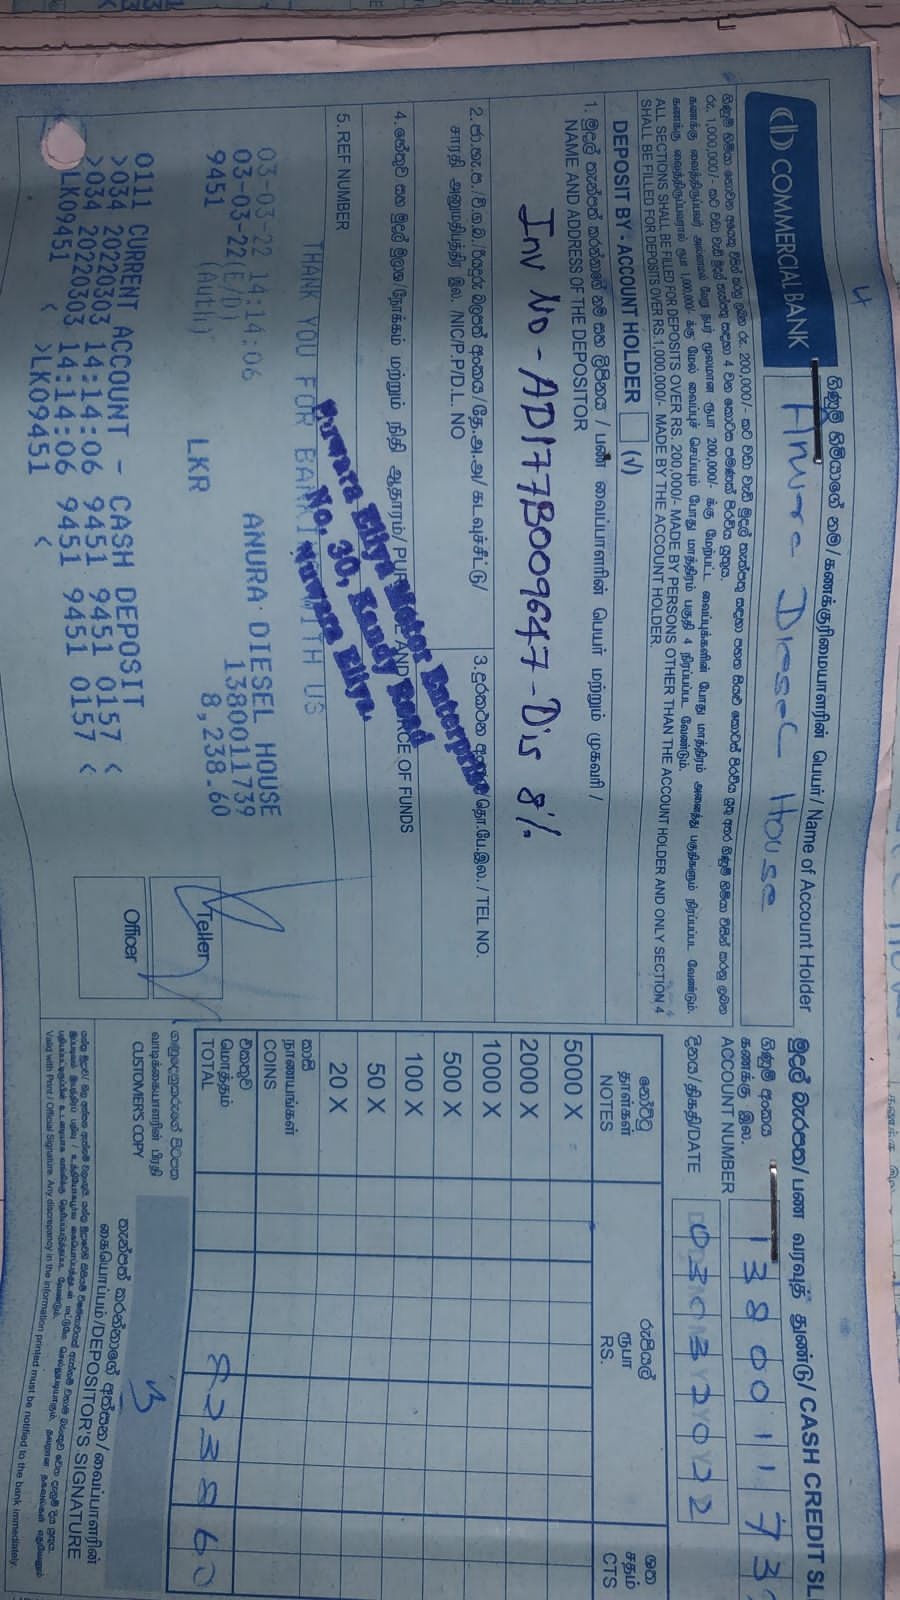 COMMERCIAL BANK
ගිණුම් හිමියාගේ නම / கணக்குரிமையாளரின் பெயர் / Name of Account Holder
Anura Diesel House
මුදල් බැරපත / பண வரவுத் துண்டு / CASH CREDIT SL
ගිණුම් අංකය
கணக்கு இல.
ACCOUNT NUMBER
13800 11 73
දිනය / திகதி / DATE
03 03 2022
ALL SECTIONS SHALL BE FILLED FOR DEPOSITS OVER RS. 200,000/- MADE BY PERSONS OTHER THAN THE ACCOUNT HOLDER AND ONLY SECTION 4
SHALL BE FILLED FOR DEPOSITS OVER RS.1,000,000/- MADE BY THE ACCOUNT HOLDER.
DEPOSIT BY - ACCOUNT HOLDER (√)
1. මුදල් තැන්පත් කරන්නාගේ නම සහ ලිපිනය / பண வைப்பாளரின் பெயர் மற்றும் முகவரி /
NAME AND ADDRESS OF THE DEPOSITOR
Inv No - AD177B009647 - Dis 8%
2. ජා.හැ.ප.
NIC/P.P/D.L. NO
3. දුරකථන
தொ.பே.இல. / TEL NO.
4. හේතුව සහ මුදල් මූලය / நோக்கம் மற்றும் நிதி ஆதாரம் / AND OF FUNDS
5. REF NUMBER
Nuwara Eliya Motor Enterprise
No. 30, Kandy Road
Nuwara Eliya.
THANK YOU FOR WITH US
03-03-22 14:14:06 ANURA DIESEL HOUSE
03-03-22(E/D) 1380011739
9451 (Auth) LKR 8,238.60
0111 CURRENT ACCOUNT - CASH DEPOSIT
>034 20220303 14:14:06 9451 9451 0157 <
>034 20220303 14:14:06 9451 9451 0157 <
LK09451 < >LK09451 <
Teller
Officer
නෝට්ටු
தாள்கள்
NOTES
රුපියල්
ரூபா
RS.
ශත
சதம்
CTS
5000 X
2000 X
1000 X
500 X
100 X
50 X
20 X
කාසි
நாணயங்கள்
COINS
එකතුව
மொத்தம்
TOTAL
8238 60
ගනුදෙනුකරුගේ පිටපත
வாடிக்கையாளரின் பிரதி
CUSTOMER'S COPY
තැන්පත් කරන්නාගේ අත්සන / வைப்பாளரின்
கையொப்பம் / DEPOSITOR'S SIGNATURE
Valid with Print / Official Signature. Any discrepancy in the information printed must be notified to the bank immediately.